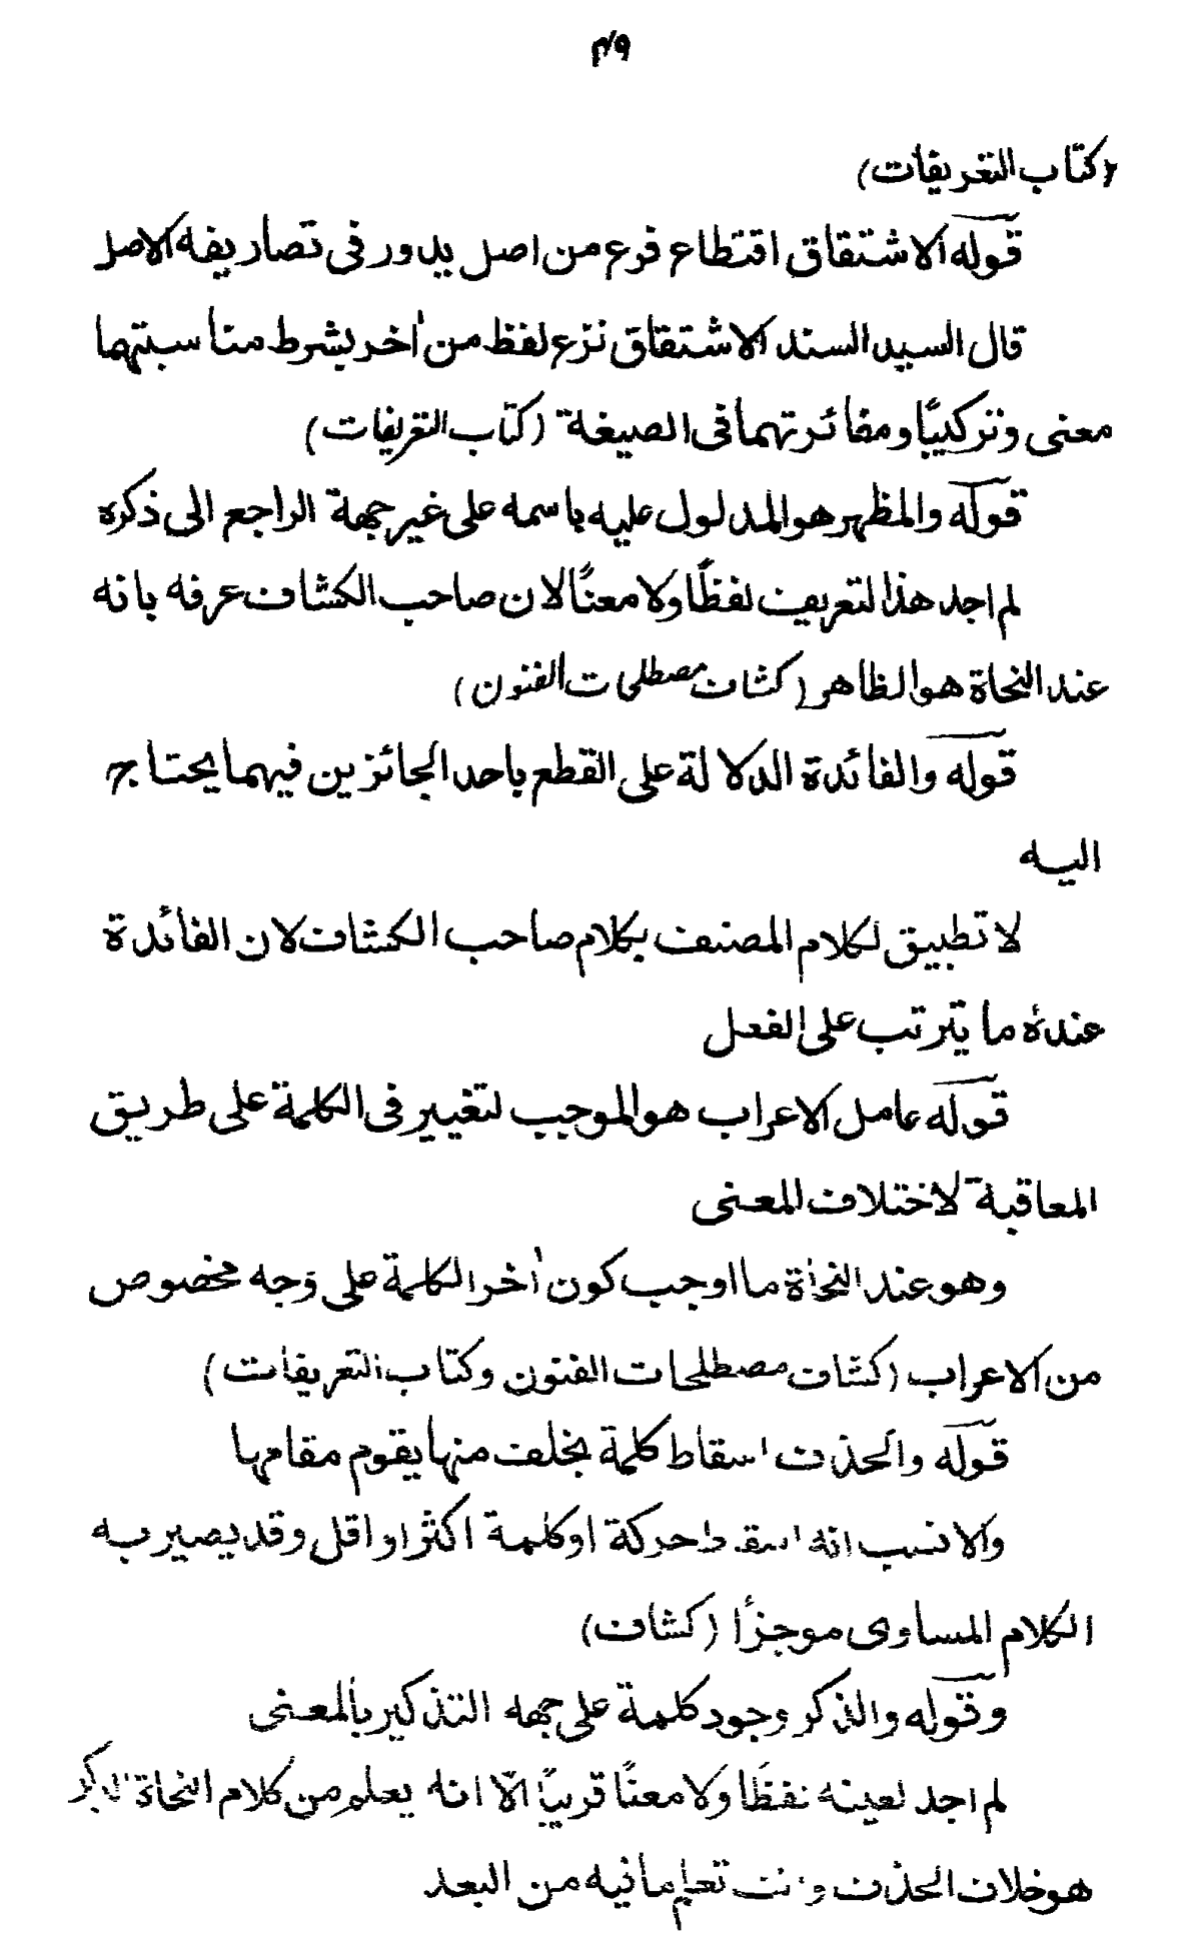 ٣٩
(كتاب التعريفات)
قوله الاشتقاق اقتطاع فرع من اصل يدور فى تصاريفه الاصل
قال السيد السند الاشتقاق نزع لفظ من أخر بشرط مناسبتهما
معنى وتركيبًا ومغائرتهما فى الصيغة (كتاب التعريفات)
قوله والمظهر هو المدلول عليه باسمه على غير جهة الراجع الى ذكره
لم اجد هذا لتعريف لفظًا ولا معنًا لان صاحب الكشاف عرفه بانه
عند النحاة هو الظاهر (كشاف مصطلحات الفنون)
قوله والفائدة الدلالة على القطع باحد الجائزين فيهما يحتاج
اليه
لا تطبيق لكلام المصنف بكلام صاحب الكشاف لان الفائدة
عنده ما يترتب على الفعل
قوله عامل الاعراب هو الموجب لتغيير فى الكلمة على طريق
المعاقبة لاختلاف المعنى
وهو عند النحاة ما اوجب كون أخر الكلمة على وجه مخصوص
من الاعراب (كشاف مصطلحات الفنون وكتاب التعريفات)
قوله والحذف اسقاط كلمة بخلف منها يقوم مقامها
والانسب انه اسقاط حركة او كلمة اكثر او اقل وقد يصير به
الكلام المساوى موجزًا (كشاف)
وقوله والذكر وجود كلمة على جهه التذكير بالمعنى
لم اجد لعينه نفظًا ولا معنًا قريبًا الّا انه يعلم من كلام النحاة الذكر
هو خلاف الحذف وانت تعلم مافيه من البعد